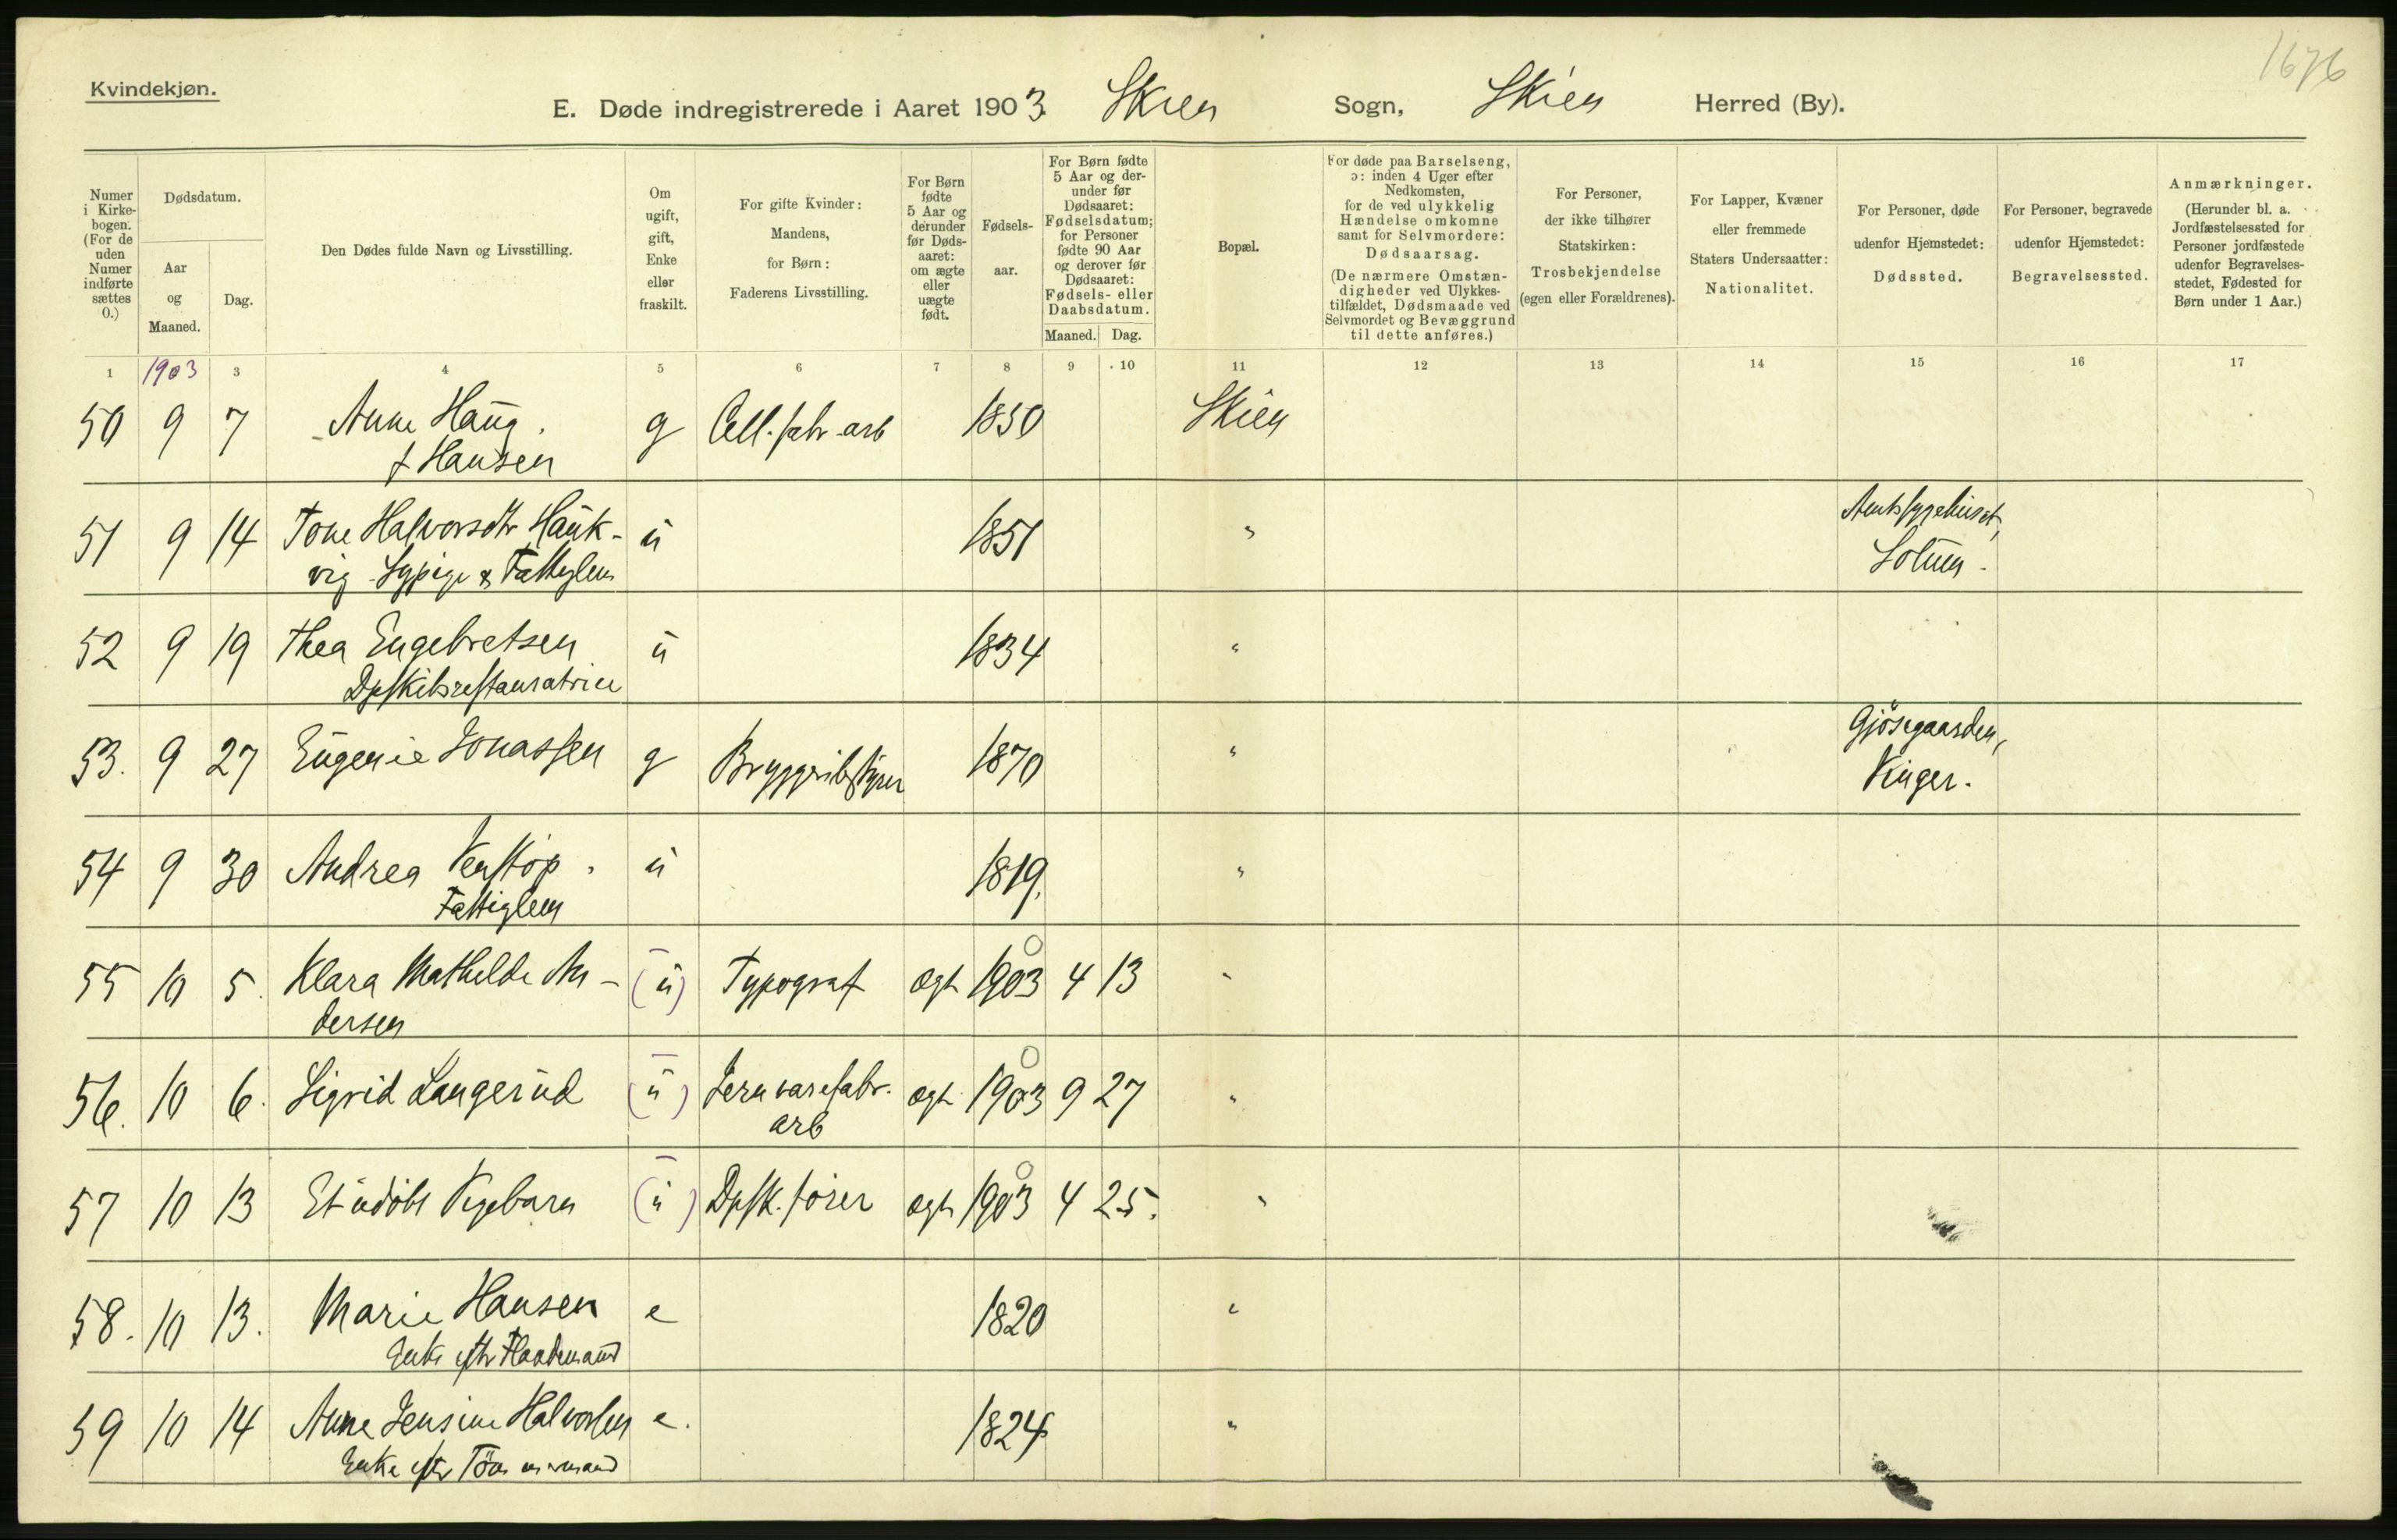 1676
Kvindekjøn.
E. Døde indregistrerede i Aaret 1903. Skien Sogn, Skien Herred (By).
Numer
i Kirke-
bogen.
(For de
uden
Numer
indførte
sættes
0.)
Dødsdatum.
Aar
og
Maaned.
Dag.
Den Dødes fulde Navn og Livsstilling.
Om
ugift,
gift,
Enke
eller
fraskilt.
For gifte Kvinder:
Mandens,
for Børn:
Faderens Livsstilling.
For Børn
fødte
5 Aar og
derunder
før Døds-
aaret:
om ægte
eller
uægte
født.
Fødsels-
aar.
For Børn fødte
5 Aar og der-
under før
Dødsaaret:
Fødselsdatum;
for Personer
fødte 90 Aar
og derover før
Dødsaaret:
Fødsels- eller
Daabsdatum.
Maaned. Dag.
Bopæl.
For døde paa Barselseng,
ɔ: inden 4 Uger efter
Nedkomsten,
for de ved ulykkelig
Hændelse omkomne
samt for Selvmordere:
Dødsaarsag.
(De nærmere Omstæn-
digheder ved Ulykkes-
tilfældet, Dødsmaade ved
Selvmordet og Bevæggrund
til dette anføres.)
For Personer,
der ikke tilhører
Statskirken:
Trosbekjendelse
(egen eller Forældrenes).
For Lapper, Kvæner
eller fremmede
Staters Undersaatter:
Nationalitet.
For Personer, døde
udenfor Hjemstedet:
Dødssted.
For Personer, begravede
udenfor Hjemstedet:
Begravelsessted.
Anmærkninger.
(Herunder bl. a.
Jordfæstelsessted for
Personer jordfæstede
udenfor Begravelses-
stedet, Fødested for
Børn under 1 Aar.)
1 1903 3 4 5 6 7 8 9 10 11 12 13 14 15 16 17
50 9 7 Anne Haug. g Cell. fabr. arb 1850 Skien
f Hansen
51 9 14 Tone Halvorsdtr Hauk- u 1851 " Amtssygehuset,
vig Sypige & Fattiglem Solum.
52 9 19 Thea Engebretsen u 1834 "
Dpskibsrestauratrice
53. 9 27 Eugenie Jonassen g Bryggeribestyrer 1870 " Gjösegaarden,
Vinger.
54 9 30 Andrea Venstöp. u 1819. "
Fattiglem
55 10 5. Klara Mathilde An- (u) Typograf ægt 1903 4 13 "
dersen
56. 10 6. Sigrid Langerud (u) Jernvarefabr. ægt 1903 9 27 "
arb
57 10 13 Et udöbt Pigebarn (u) Dpsk. förer ægt 1903 4 25. "
58. 10 13. Marie Hansen e 1820 "
Enke eftr Flaademand
59 10 14 Anne Jensine Halvorsen e. 1824 "
Enke eftr Tömmermand